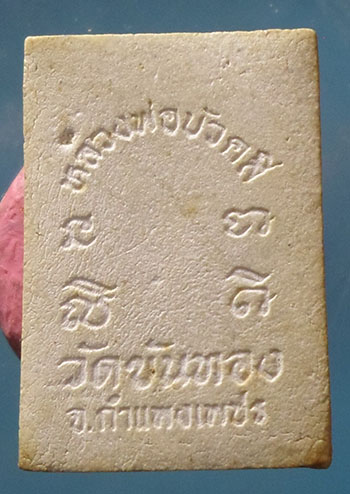 หลวงพ่อบัวคลี่
วัดขันทอง
จ.กำแพงเพชร